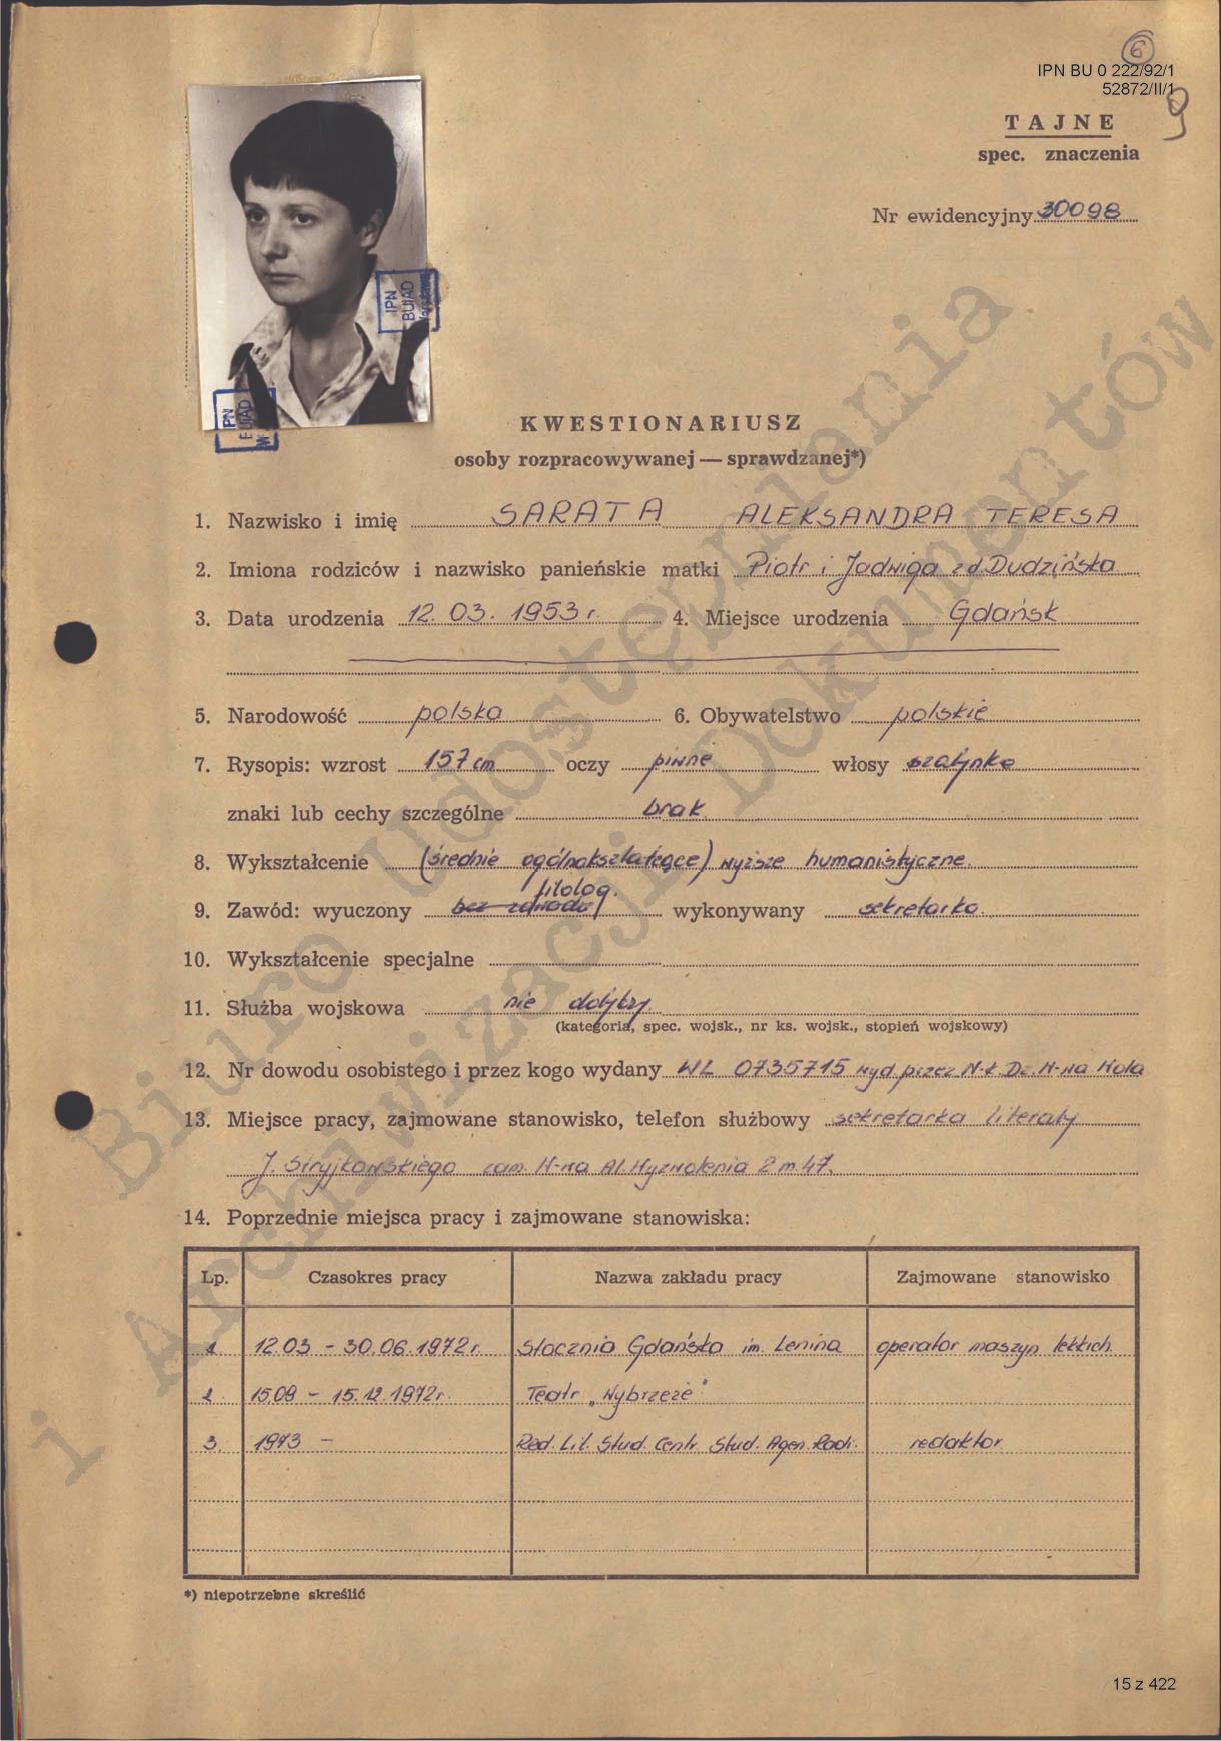 6
IPN BU 0 222/92/1
52872/II/1
9
TAJNE
spec. znaczenia
Nr ewidencyjny 30098
IPN
BUiAD
Warszawa
IPN
BUiAD
W
KWESTIONARIUSZ
osoby rozpracowywanej — sprawdzanej*)
1. Nazwisko i imię SARATA ALEKSANDRA TERESA
2. Imiona rodziców i nazwisko panieńskie matki Piotr i Jadwiga z d. Dudzińska
3. Data urodzenia 12.03.1953 r. 4. Miejsce urodzenia Gdańsk
5. Narodowość polska 6. Obywatelstwo polskie
7. Rysopis: wzrost 157 cm oczy piwne włosy szatynka
znaki lub cechy szczególne brak
8. Wykształcenie (średnie ogólnokształcące) wyższe humanistyczne.
filolog.
9. Zawód: wyuczony bez zawodu wykonywany sekretarka.
10. Wykształcenie specjalne
11. Służba wojskowa nie dotyczy
(kategoria, spec. wojsk., nr ks. wojsk., stopień wojskowy)
12. Nr dowodu osobistego i przez kogo wydany WL 0735715 wyd. przez W-ł. Dz. W-wa Wola
13. Miejsce pracy, zajmowane stanowisko, telefon służbowy sekretarka literaty
J. Stryjkowskiego zam. W-wa Al. Wyzwolenia 2 m 47.
14. Poprzednie miejsca pracy i zajmowane stanowiska:
Lp. Czasokres pracy Nazwa zakładu pracy Zajmowane stanowisko
1 12.03 - 30.06.1972 r. Stocznia Gdańska im. Lenina operator maszyn lekkich
2. 15.09 - 15.12.1972 r. Teatr „Wybrzeże"
3. 1973 - Red. Lit. Stud. Centr. Stud. Agen. Radi. redaktor
*) niepotrzebne skreślić
Biuro Udostępniania
i Archiwizacji Dokumentów
15 z 422